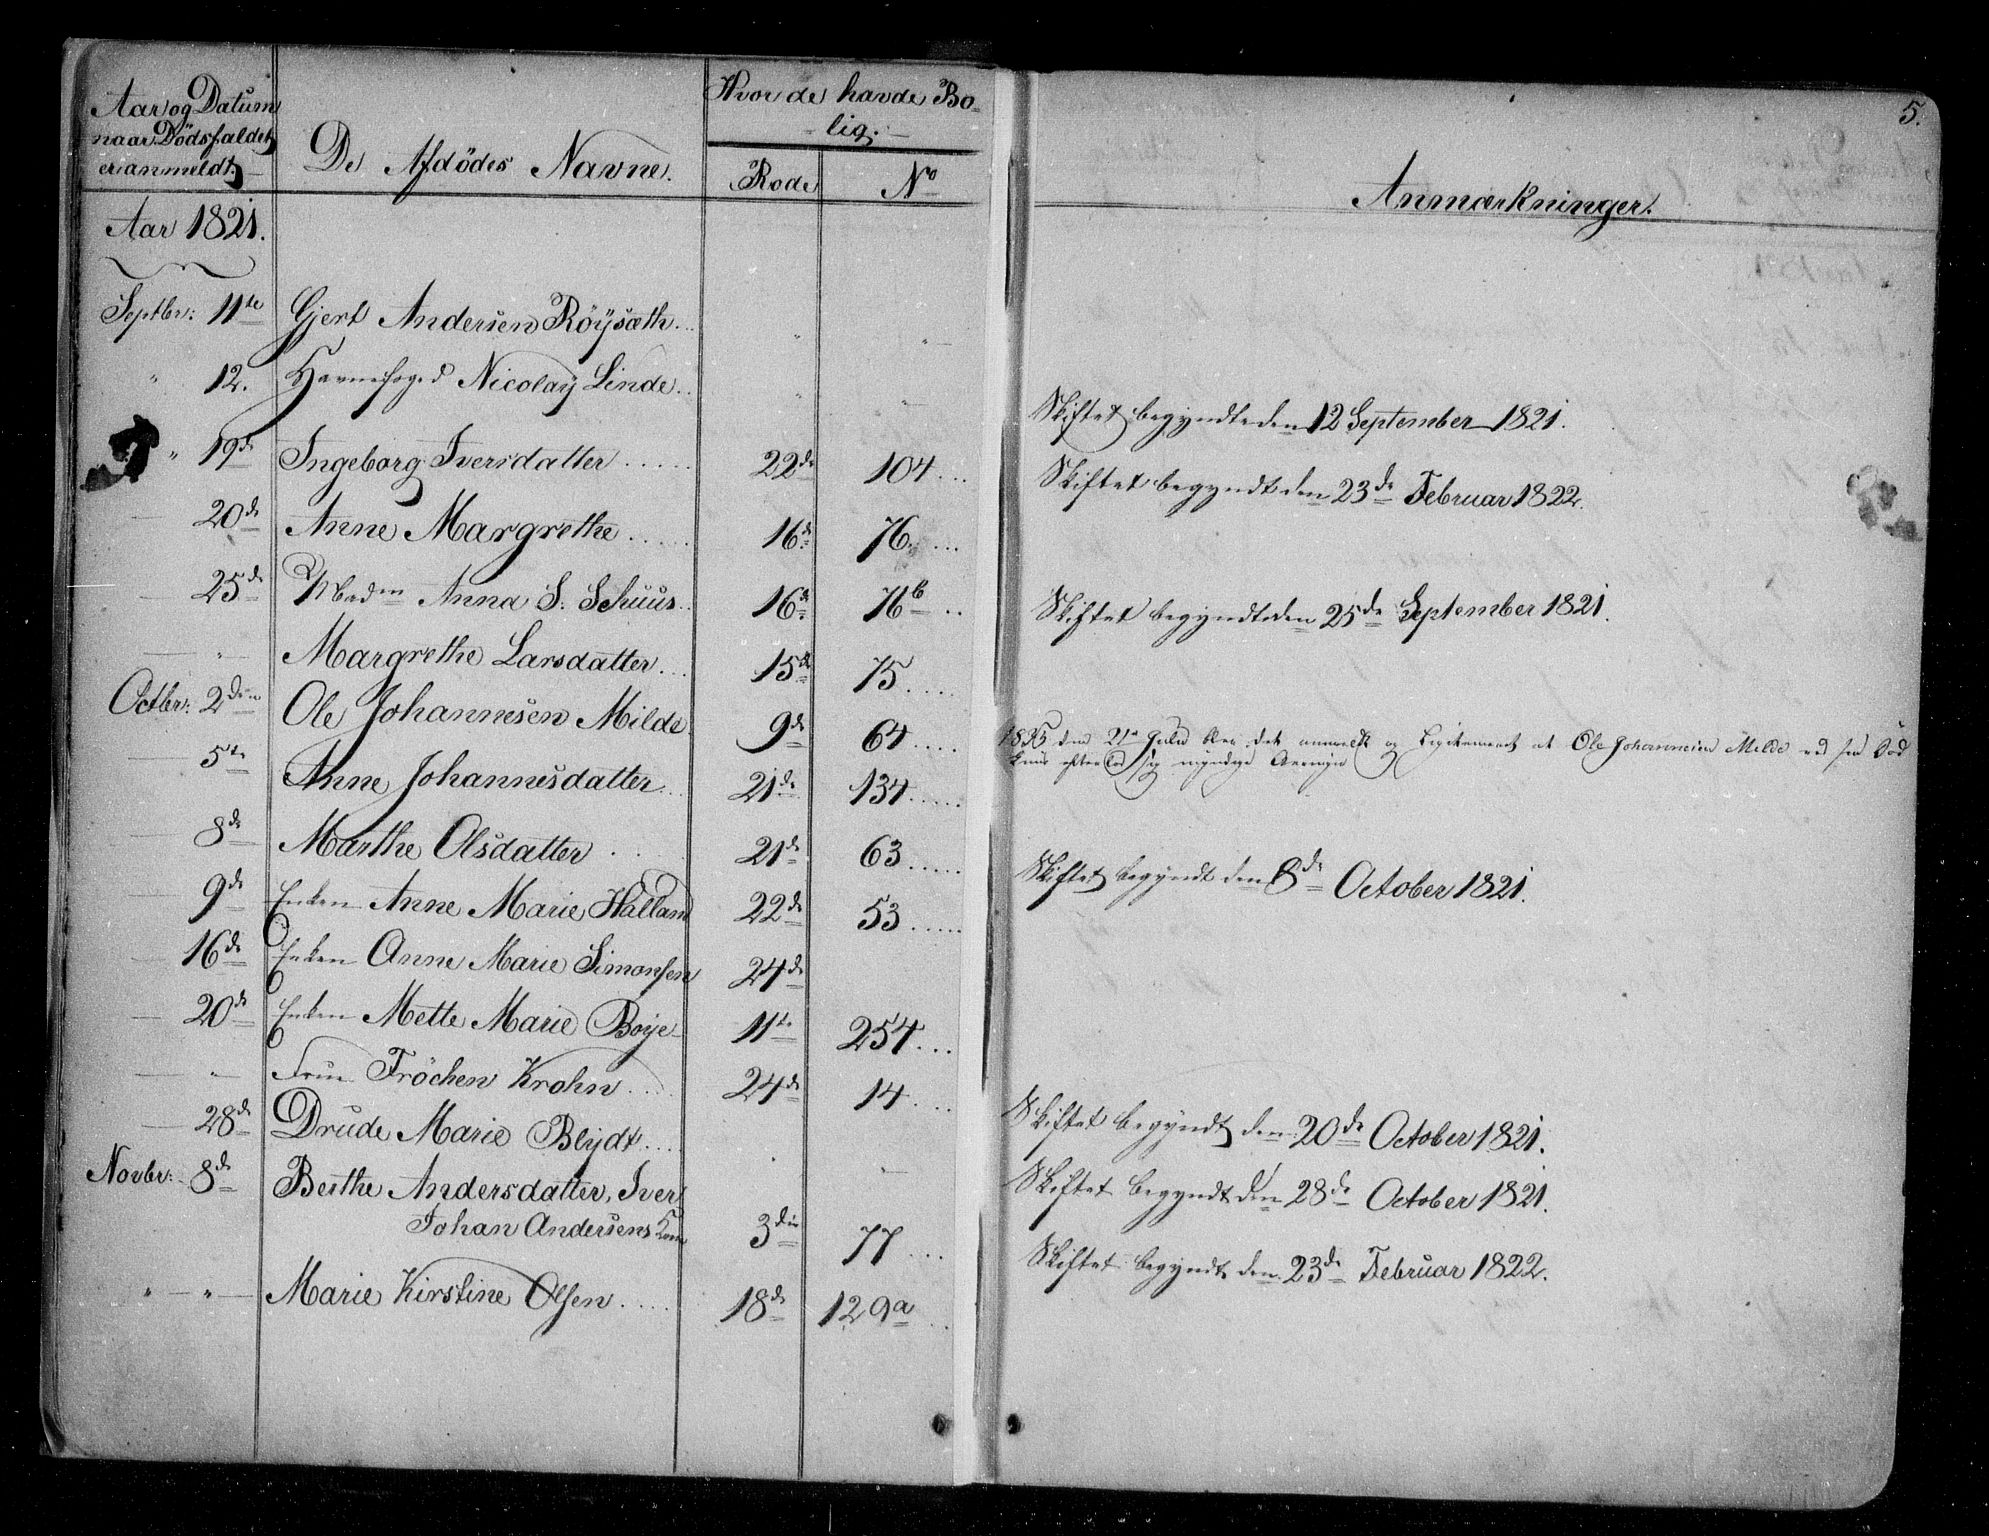 Aar og Datum
naar Dödsfaldet
er anmeldt.
De Afdödes Navne.
Hvor de havde Bo-
lig.
Rode
No
5.
Anmærkninger.
Aar 1821.
Septbr: 11te Gjert Andersen Röysæth. " "
" 12. Havnefoged Nicolay Linde. " — Skiftet begyndte den 12 September 1821.
" 19de Ingeborg Iversdatter 22de 104 Skiftet begyndt den 23de Februar 1822.
— 20de Anne Margrethe 16de 76.
— 25de Madm Anna S. Schüüs 16de 76b Skiftet begyndte den 25de September 1821.
— " — Margrethe Larsdatter 15de 75
Octbr: 2den Ole Johannesen Milde 9de 64 1835 den 21de Julii blev det anmeldt og Legitimeret at Ole Johannesen Milde ved sin Död
kuns efterlod sig myndige Arvinger
— 5te Anne Johannesdatter 21de 134
— 8de Marthe Olsdatter 21de 63 Skiftet begyndt den 8de October 1821.
— 9de Enken Anne Marie Halland 22de 53
— 16de Enken Anne Marie Simonsen 24de
— 20de Enken Mette Marie Boye 11te 254
— " — Frue Fröchen Krohn 24de 14 Skiftet begyndt den 20de October 1821.
— 28de Drude Marie Blydt " — Skiftet begyndt den 28de October 1821.
Novbr: 8de Berthe Andersdatter, Iver
Johan Andersens Kone 3die 77 Skiftet begyndt den 23de Februar 1822.
" — " — Marie Kirstine Olsen 18de 129a